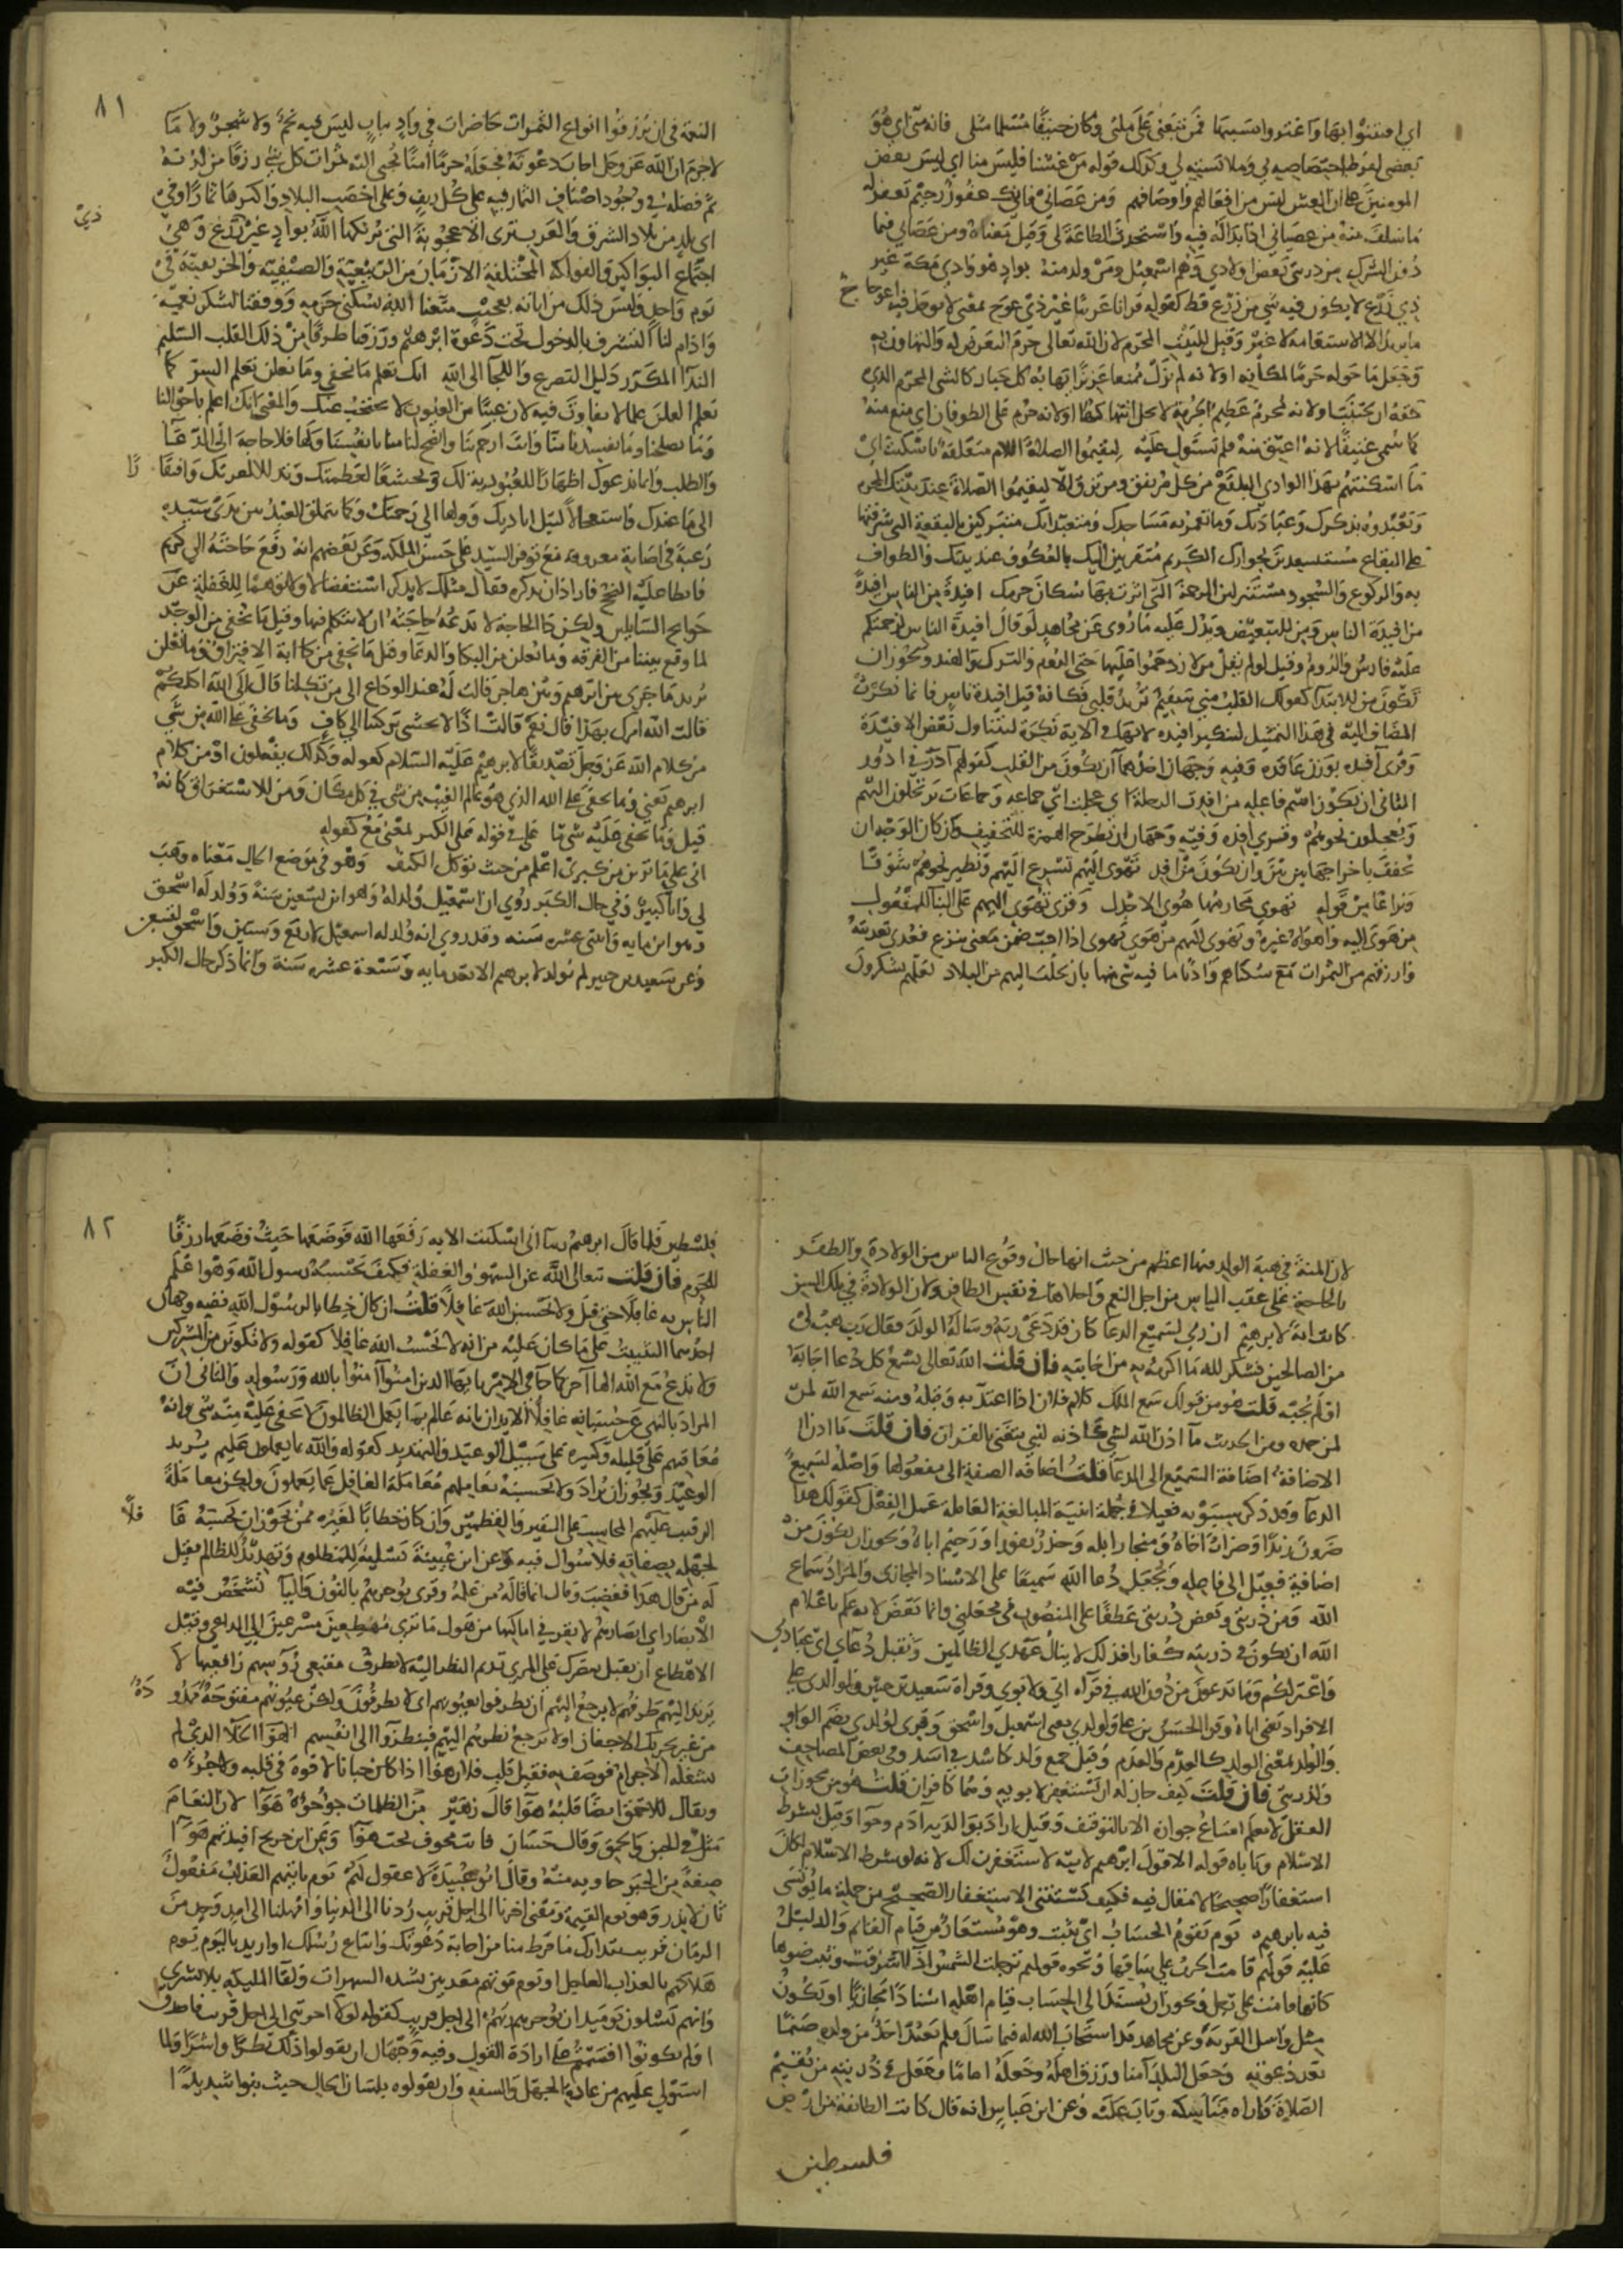 اي افتتنوا بها واغتروا بسببها فمن تبعني على ملتي وكان حنيفا مسلما مثلي فانه مني اي هو
بعضي لفرط اختصاصه بي وملابسته لي وكذلك قوله من غشنا فليس منا اي ليس بعض
المومنين على ان الغش ليس من افعالهم واوصافهم ومن عصاني فانك غفور رحيم تغفر له
ما سلف منه من عصياني اذا بدا له فيه واستحدث الطاعة لي وقيل معناه ومن عصاني فيما
دون الشرك من ذريتي بعض اولادي وهم اسمعيل ومن ولد منه بواد هو وادي مكة غير
ذي زرع لا يكون فيه شي من زرع قط كقوله قرانا عربيا غير ذي عوج بمعنى لا يوجد فيه اعوجا ج
ما يريد الا الاستقامة لا غير وقيل للبيت المحرم لان الله تعالى حرم التعرض له والتهاون به
وجعل ما حوله حرما لمكانه او لانه لم يزل ممنعا عزيزا يهابه كل جبار كالشي المحرم الذي
حقه ان يجتنب او لانه محرم عظيم الحرمة لا يحل انتهاكها او لانه حرم على الطوفان اي منع منه
كما سمي عتيقا لانه اعتق منه فلم يستول عليه ليقيموا الصلاة اللام متعلقة باسكنت اي
ما اسكنتهم بهذا الوادي البلقع من كل مرتفق ومرتزق الا ليقيموا الصلاة عند بيتك المحرم
ويعبدوه بذكرك وعبادتك وما تعمر به مساجدك ومتعبداتك متبركين بالبقعة التي شرفتها
على البقاع مستسعدين بجوارك الكريم متقربين اليك بالعكوف عند بيتك والطواف
به والركوع والسجود مستنزلين الرحمة التي اثرت بها سكان حرمك افيدة من الناس افيدة
من افيدة الناس ومن للتبعيض ويدل عليه ما روي عن مجاهد لو قال افيدة الناس لزحمتكم
عليه فارس والروم وقيل لو لم يقل من لازدحموا عليها حتى الروم والترك والهند ويجوز ان
تكون من للابتدا كقولك القلب مني سقيم تريد قلبي فكانه قيل افيدة ناس فانما نكرت
المضاف اليه في هذا التمثيل لتنكير افيدة لانها في الاية نكرة لتتناول بعض الافيدة
وقري آفدة بوزن عاقدة وفيه وجهان احدهما ان يكون من القلب كقولهم آدر في ادور
الثاني ان يكون اسم فاعله من افدت الرحلة اي عجلت اي جماعة وجماعات يرتحلون اليهم
ويعجلون نحوهم وقري افدة وفيه وجهان ان تطرح الهمزة للتخفيف وان كان الوجه ان
تخفف باخراجها بين بين وان يكون من افد تهوي اليهم تسرع اليهم وتطير نحوهم شوقا
ونزاعا من قوله تهوي مخارمها هوي الاجدل وقري تهوى اليهم على البنا للمفعول
من هوى اليه واهواه غيره وتهوى اليهم من هوي يهوى اذا احب ضمن معنى تنزع فعدي تعديته
وارزقهم من الثمرات مع سكناهم واديا ما فيه شي منها بان تجلب اليهم من البلاد لعلهم يشكرون
٨١
النعمة في ان يرزقوا انواع الثمرات حاضرات في واد يباب ليس فيه نجم ولا شجر ولا ما
لا جرم ان الله عز وجل اجاب دعوته فجعله حرما آمنا تجبى اليه ثمرات كل شي رزقا من لدنه
ثم فضله في وجود اصناف الثمار فيه على كل ريف وعلى اخصب البلاد واكثرها ثمارا وفي
اي بلد من بلاد الشرق والغرب ترى الاعجوبة التي يريكها الله بواد غير ذي زرع وهي
اجتماع البواكير والفواكه المختلفة الازمان من الربيعية والصيفية والخريفية في
يوم واحد وليس ذلك من اياته بعجيب متعنا الله بسكنى حرمه ووفقنا لشكر نعمه
وادام لنا التشرف بالدخول تحت دعوة ابرهيم ورزقنا طرفا من ذلك القلب السليم
الندآ المكرر دليل التضرع واللجا الى الله انك تعلم ما نخفي وما نعلن تعلم السر كما
تعلم العلن علما لا تفاوت فيه لان غيبا من الغيوب لا يحتجب عنك والمعنى انك اعلم باحوالنا
وما يصلحنا وما يفسدنا منا وانت ارحم بنا وانصح لنا منا بانفسنا ولها فلا حاجة الى الدعآ
والطلب وانما ندعوك اظهارا للعبودية لك وتخشعا لعظمتك وتذللا لعزتك وافتقارا
الى ما عندك واستعجالا لنيل اياديك وولها الى رحمتك وكما يتملق العبد بين يدي سيده
رغبة في اصابة معروفه مع توفر السيد على حسن الملكة وعن بعضهم انه رفع حاجته الى كريم
فابطا عليه النجح فاراد ان يذكره فقال مثلك لا يذكر استقصارا ولا توهما للغفلة عن
حوايج السايلين ولكن ذا الحاجة لا تدعه حاجته ان لا يتكلم فيها وقيل ما نخفي من الوجد
لما وقع بيننا من الفرقة وما نعلن من البكا والدعآ وقيل ما نخفي من كآبة الافتراق وما نعلن
يريد ما جرى بين ابرهيم وبين هاجر قالت له عند الوداع الى من تكلنا قال الى الله اكلكم
قالت آلله امرك بهذا قال نعم قالت اذا لا نخشى تركتنا الى كاف وما يخفى على الله من شي
من كلام الله عز وجل تصديقا لابرهيم عليه السلام كقوله وكذلك يفعلون او من كلام
ابرهيم يعني وما يخفى على الله الذي هو عالم الغيب من شي في كل مكان ومن للاستغراق كانه
قيل وما يخفى عليه شي ما على في قوله على الكبر بمعنى مع كقوله
اني على ما ترين من كبري اعلم من حيث توكل الكتف وهو في موضع الحال معناه وهب
لي وانا كبير وفي حال الكبر روي ان اسمعيل ولد له وهو ابن تسع وتسعين سنة وولد له اسحق
وهو ابن مايه واثنتي عشره سنه وقد روي انه ولد له اسمعيل لاربع وستين واسحق لتسعين
وعن سعيد بن جبير لم يولد لابرهيم الا بعد مايه وسبعة عشره سنة وانما ذكر حال الكبر
لان المنة في هبة الولد فيها اعظم من حيث انها حال وقوع الياس من الولادة والظفر
بالحاجة على عقب الياس من اجل النعم واحلاها في نفس الظافر ولان الولادة في تلك السن
كانت اية لابرهيم ان ربي لسميع الدعا كان قد دعى ربه وساله الولد فقال رب هب لي
من الصالحين فشكر لله ما اكرمه به من اجابته فان قلت الله تعالى يسمع كل دعا اجابه
او لم يجبه قلت هو من قولك سمع الملك كلام فلان اذا اعتد به وقبله ومنه سمع الله لمن
لمن حمده ومن الحديث ما اذن الله لشي كاذنه لنبي يتغنى بالقران فان قلت ما اذا
الاضافة اضافة السميع الى الدعآ قلت اضافة الصفة الى مفعولها واصله لسميع
الدعآ وقد ذكر سيبويه فعيلا في جملة ابنية المبالغة العاملة عمل الفعل كقولك هذا
ضروب زيدا وضراب اخاه ومنحار ابله وحذر امورا ورحيم اباه ويجوز ان يكون من
اضافة فعيل الى فاعله ويجعل دعا الله سميعا على الاسناد المجازي والمراد سماع
الله ومن ذريتي وبعض ذريتي عطفا على المنصوب في اجعلني وانما بعض لانه علم باعلام
الله ان يكون في ذريته كفار وذلك لا ينال عهدي الظالمين وتقبل دعاي اي عبادتي
واعتزلكم وما تدعون من دون الله في قرآة ابي ولابوي وقراة سعيد بن جبير ولوالدي على
الافراد يعني اباه وقرا الحسن بن على ولولدي يعني اسمعيل واسحق وقري لولدي بضم الواو
والولد بمعنى الولد كالعدم والعدم وقيل جمع ولد كاسد في اسد وفي بعض المصاحف
ولذريتي فان قلت كيف جاز له ان يستغفر لابويه وهما كافران قلت هو من مجوزات
العقل لا يعلم امتناع جوازه الا بالتوقيف وقيل اراد بوالديه آدم وحوا وقيل بشرط
الاسلام وياباه قوله الا قول ابرهيم لابيه لاستغفرن لك لانه لو شرط الاسلام لكان
استغفارا صحيحا لا مقال فيه فكيف يستثنى الاستغفار الصحيح من جملة ما يوتسى
فيه بابرهيم يوم يقوم الحساب اي يثبت وهو مستعار من قيام القايم والدليل
عليه قولهم قامت الحرب على ساقها ونحوه قولهم ترجلت الشمس اذا اشرقت وثبت ضوها
كانها قامت على رجل ويجوز ان يسند الى الحساب قيام اهله اسنادا مجازيا او يكون
مثل واسل القرية وعن مجاهد قد استجاب الله له فيما سال فلم يعبد احد من ولده صنما
بعد دعوته وجعل البلد آمنا ورزق اهله وجعله اماما وجعل في ذريته من يقيم
الصلاة واراه مناسكه وتاب عليه وعن ابن عباس انه قال كانت الطائفة من ارض
فلسطين
٨٢
فلسطين فلما قال ابرهيم ربنا اني اسكنت الايه رفعها الله فوضعها حيث وضعها رزقا
للحرم فان قلت تعالى الله عن السهو والغفلة فكيف يحسبه رسول الله وهو اعلم
الناس به غافلا حتى قيل ولا تحسبن الله غافلا قلت ان كان خطابا لرسول الله ففيه وجهان
احدهما التثبيت على ما كان عليه من انه لا يحسب الله غافلا كقوله ولا تكونن من المشركين
ولا تدع مع الله الها آخر كما جا في الامر يايها الذين امنوا آمنوا بالله ورسوله والثاني ان
المراد بالنهي عن حسبانه غافلا الايذان بانه عالم بما يعمل الظالمون لا يخفى عليه منه شي وانه
معاقبهم على قليله وكثيره على سبيل الوعيد والتهديد كقوله والله بما يعملون عليم يريد
الوعيد ويجوز ان يراد ولا تحسبنه يعاملهم معاملة الغافل عما يعملون ولكن معاملة
الرقيب عليهم المحاسب على النقير والقطمير وان كان خطابا لغيره ممن يجوز ان يحسبه غافلا
لجهله بصفاته فلا سوال فيه وعن ابن عيينة تسلية للمظلوم وتهديد للظالم فقيل
له من قال هذا فغضب وقال انما قاله من علمه وقري يوخرهم بالنون واليا تشخص فيه
الابصار اي ابصارهم لا تقر في اماكنها من هول ما ترى مهطعين مسرعين الى الداعي وقيل
الاهطاع ان تقبل ببصرك على المري تديم النظر اليه لا تطرف مقنعي رؤسهم رافعيها لا
يرتد اليهم طرفهم لا يرجع اليهم ان يطرفوا بعيونهم اي لا يطرفون ولكن عيونهم مفتوحة ممدودة
من غير تحريك الاجفان او لا يرجع نظرهم اليهم فينظروا الى انفسهم الهوا الخلآ الذي لم
تشغله الاجرام فوصف به فقيل قلب فلان هوا اذا كان جبانا لا قوة في قلبه ولا جرءة
ويقال للاحمق ايضا قلبه هوا قال زهير من الظلمان جؤجؤه هوآ لان النعام
مثل في الجبن والحمق وقال حسان فانت مجوف نخب هوا وعن ابن جريج افيدتهم هوآ
صفة من الخير خاوية منه وقال ابو عبيدة لا عقول لهم يوم ياتيهم العذاب مفعول
ثان لانذر وهو يوم القيمة ومعنى اخرنا الى اجل قريب ردنا الى الدنيا وامهلنا الى امد وحد من
الزمان قريب نتدارك ما فرط منا من اجابة دعوتك واتباع رسلك او اريد باليوم يوم
هلاكهم بالعذاب العاجل او يوم موتهم معذبين بشدة السكرات ولقآ المليكة بلا بشرى
وانهم يسئلون يوميذ ان يوخرهم ربهم الى اجل قريب كقوله لولا اخرتني الى اجل قريب فاصدق
اولم تكونوا اقسمتم على ارادة القول وفيه وجهان ان يقولوا ذلك بطرا واشرا ولما
استولى عليهم من عادة الجهل والسفه وان يقولوه بلسان الحال حيث بنوا شديدا